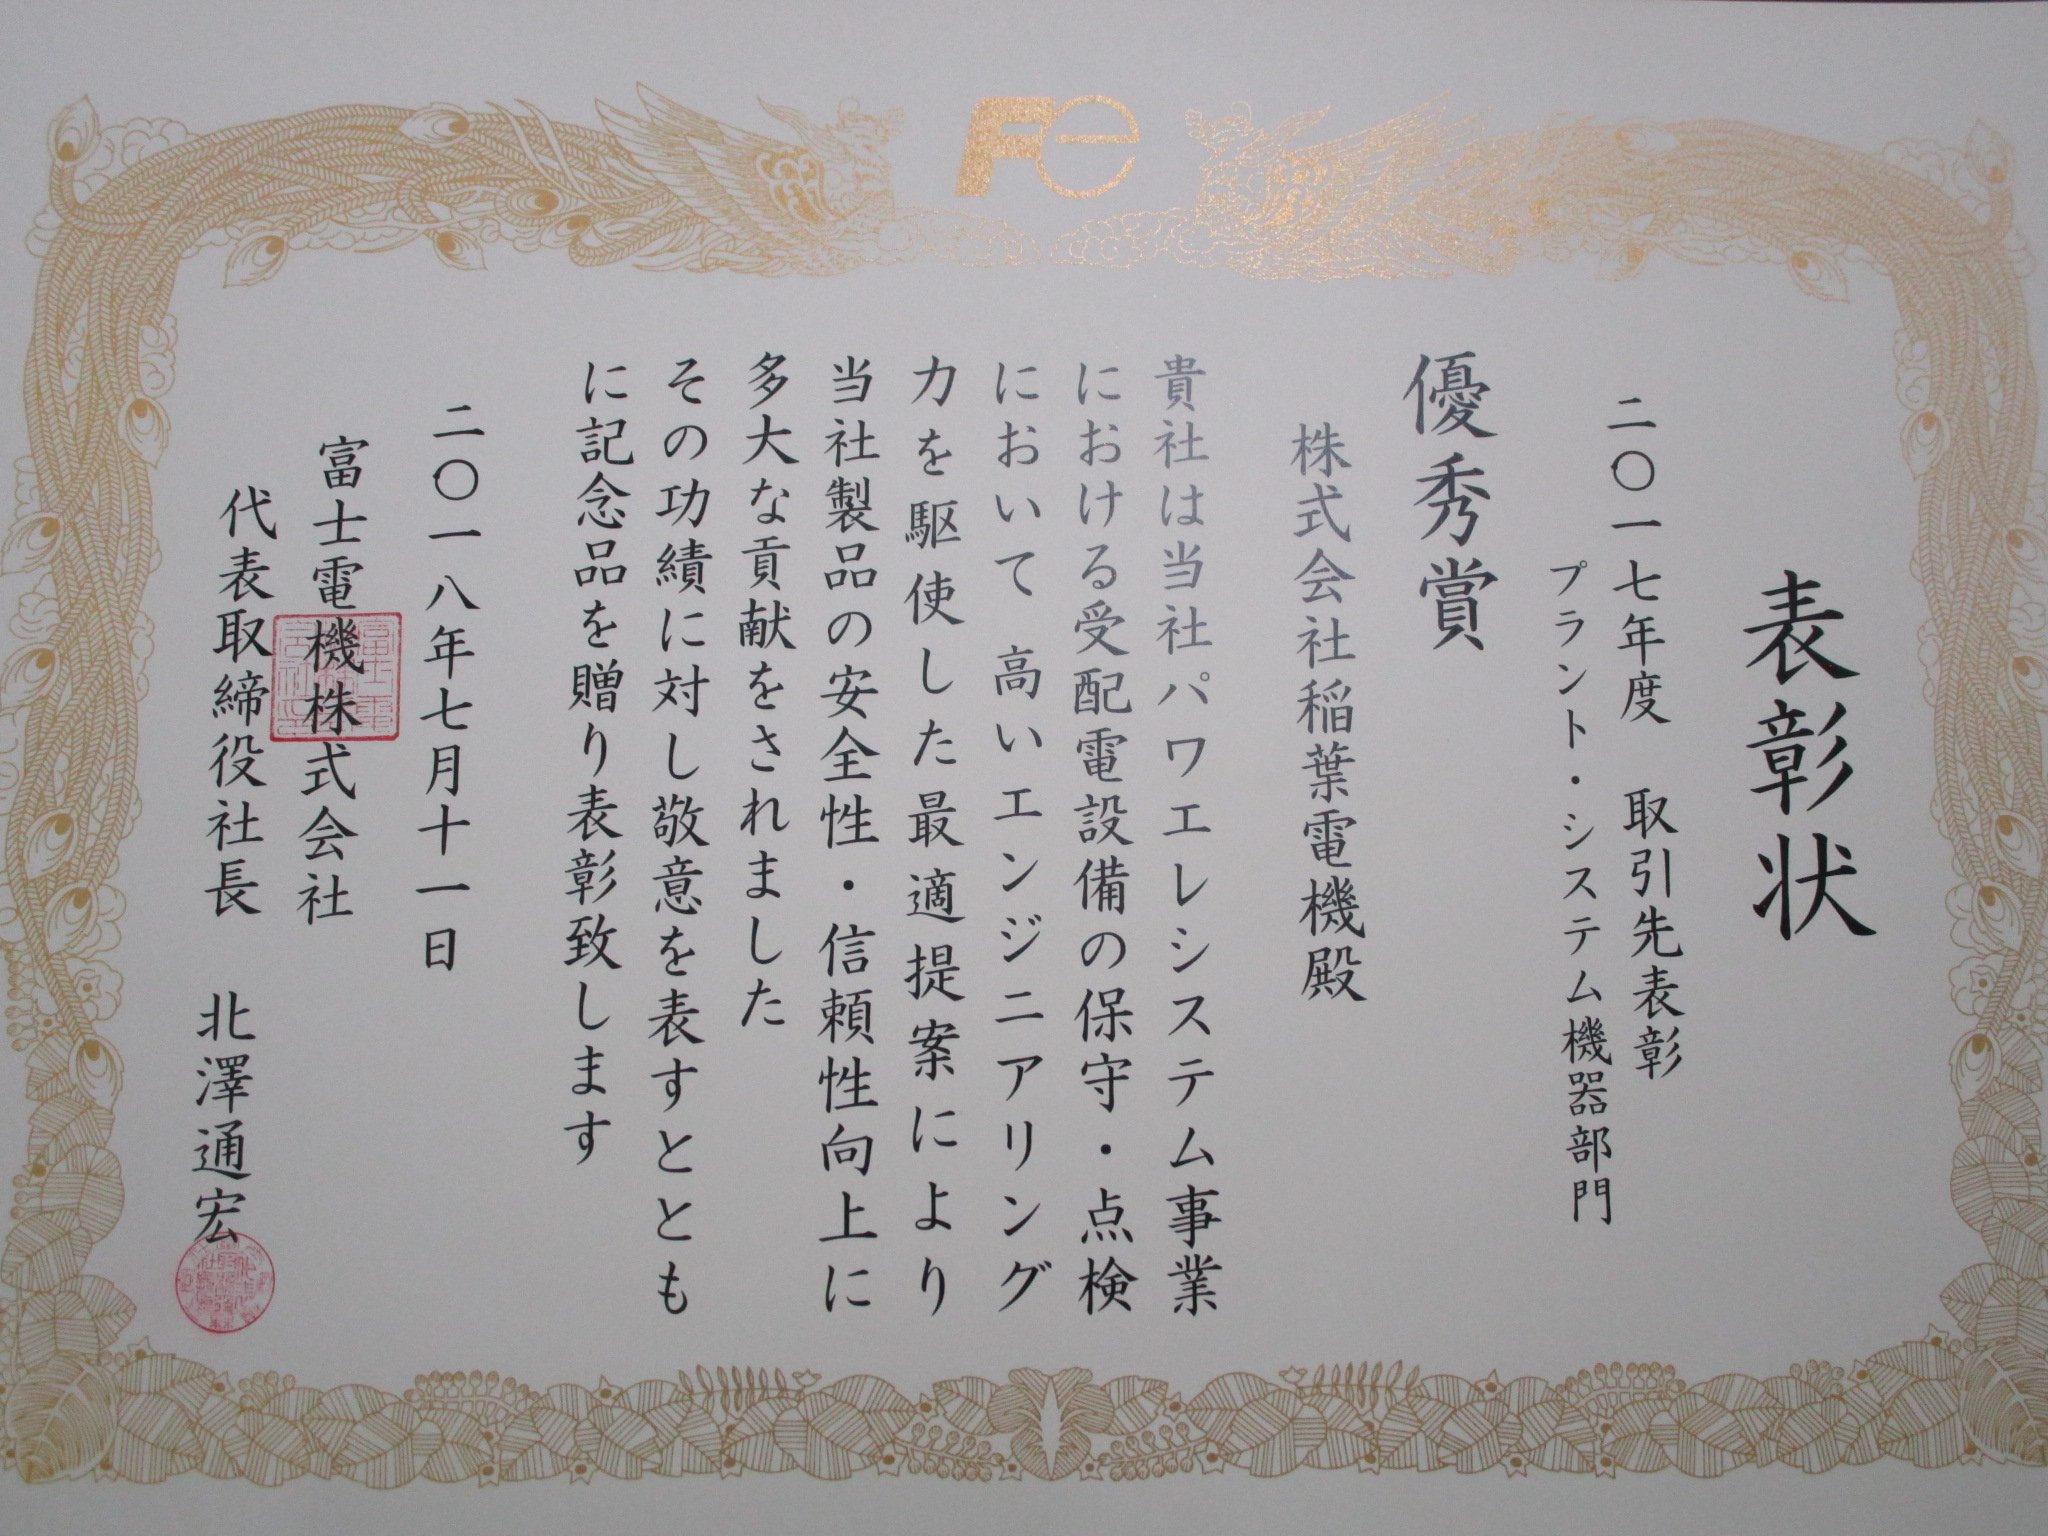 Fe
表彰状
二〇一七年度　取引先表彰
プラント・システム機器部門
優秀賞
株式会社稲葉電機殿
貴社は当社パワエレシステム事業
における受配電設備の保守・点検
において高いエンジニアリング
力を駆使した最適提案により
当社製品の安全性・信頼性向上に
多大な貢献をされました
その功績に対し敬意を表すととも
に記念品を贈り表彰致します
二〇一八年七月十一日
富士電機株式会社
代表取締役社長　北澤通宏